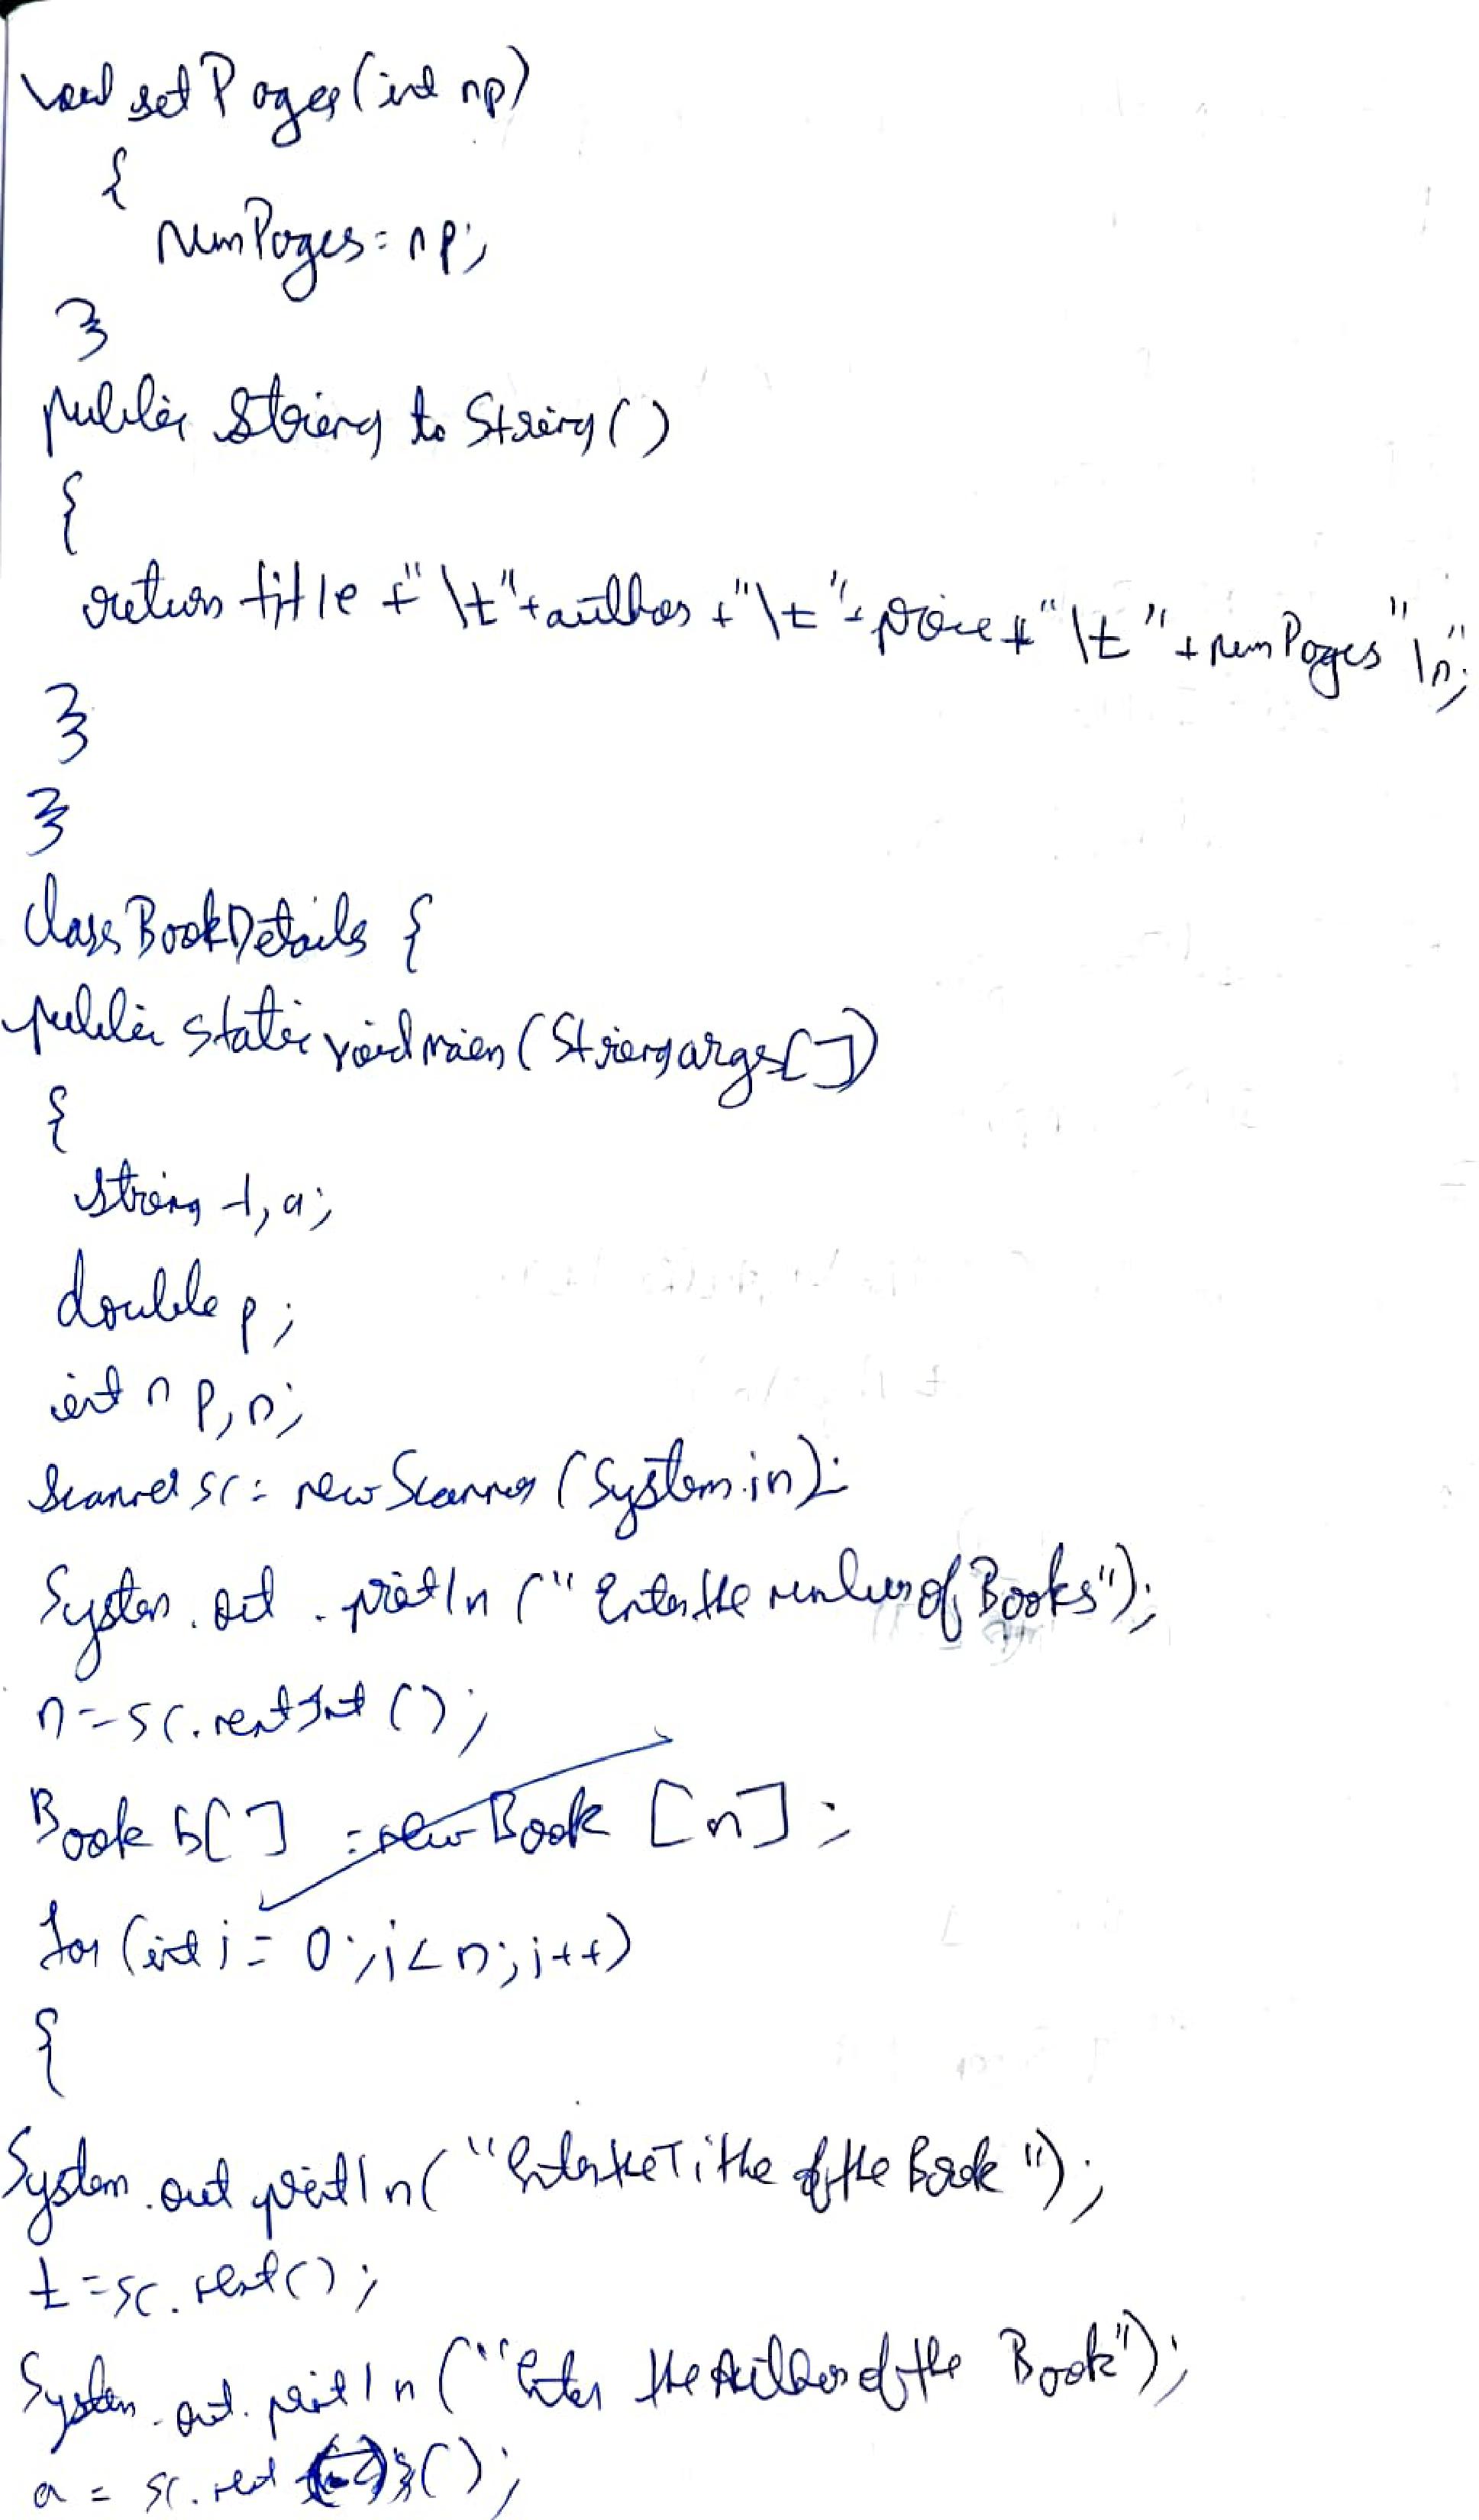 void setPages(int np)
{
numPages = np;
}
public String to String()
{
return title + "\t" + author + "\t" + price + "\t" + numPages "\n";
}
}
class BookDetails {
public static void main (String args[])
{
String t, a;
double p;
int np, n;
Scanner sc = new Scanner (System.in);
System.out.println ("Enter the number of Books");
n = sc.nextInt ();
Book b[] = new Book [n];
for (int i = 0; i < n; i++)
{
System.out.println ("Enter the Titlle of the Book");
t = sc.next();
System.out.println ("Enter the Author of the Book");
a = sc.next ();